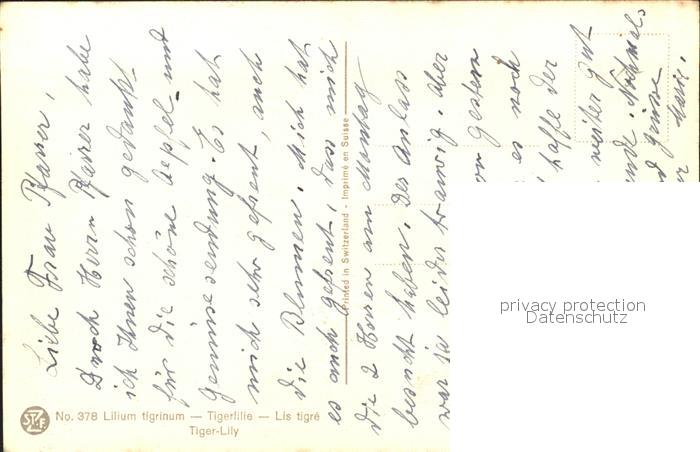 Liebe Frau Pfarrer,
Durch Herrn Pfarrer habe
ich Ihnen schon gedankt
für die schöne Aepfel- und
Gemüsesendung. Es hat
mich sehr gefreut, auch
die Blumen. Mich hat
es auch gefreut, dass mich
die 2 Herren am Montag
besucht haben. Der Anlass
war ja leider traurig. Aber
gestern
es noch
hoffe der
weiter gut
Nochmals
Grüsse
No. 378 Lilium tigrinum — Tigerlilie — Lis tigré
Tiger-Lily
Printed in Switzerland - Imprimé en Suisse
privacy protection
Datenschutz